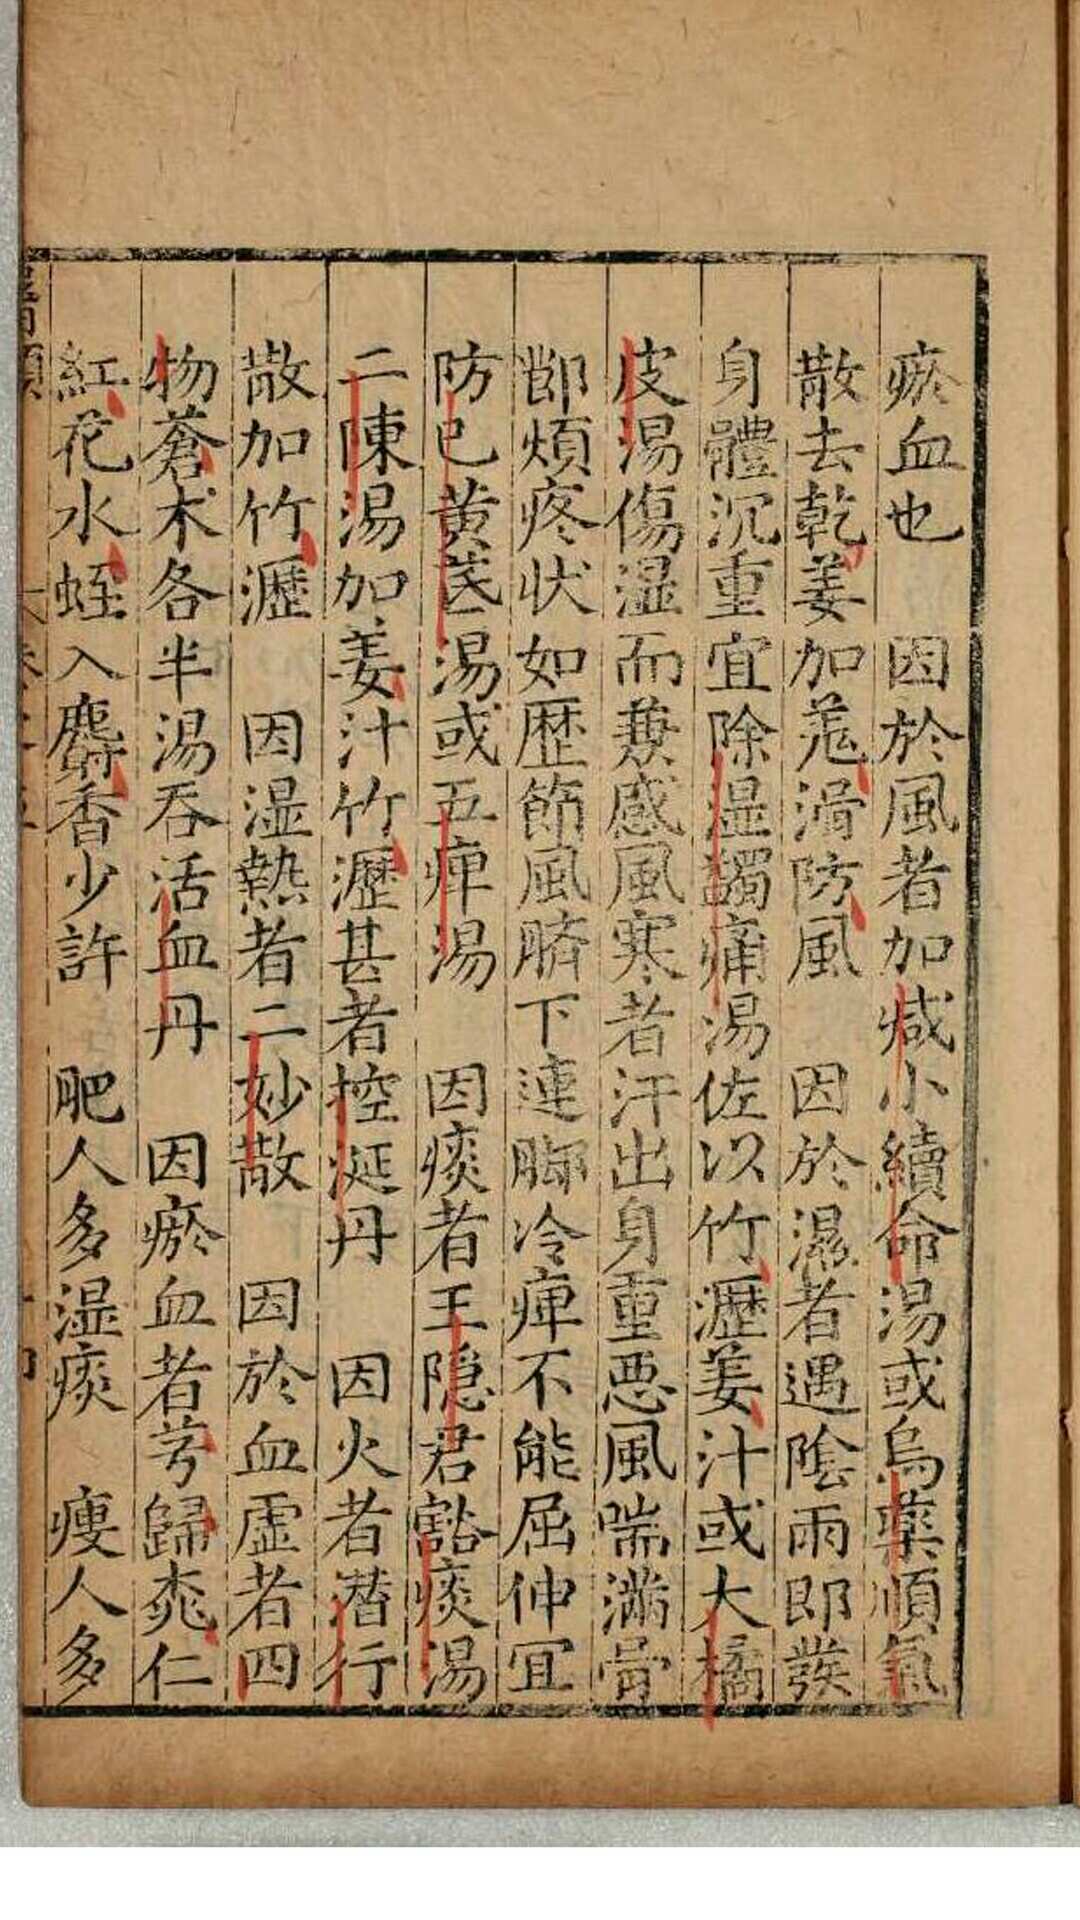 瘀血也　因於風者加减小續命湯或烏藥順氣
散去乾姜加羗滑防風　因於濕者遇陰雨即發
身體沉重宜除湿蠲痛湯佐以竹瀝姜汁或大橘
皮湯傷湿而兼感風寒者汗出身重恶風喘滿骨
節煩疼状如歴節風臍下連脚冷痺不能屈伸宜
防已黄茋湯或五痺湯　因痰者王隐君豁痰湯
二陳湯加姜汁竹瀝甚者控涎丹　因火者潜行
散加竹瀝　因湿熱者二妙散　因於血虚者四
物蒼术各半湯吞活血丹　因瘀血者芎歸桃仁
紅花水蛭入麝香少許　肥人多湿痰　瘦人多